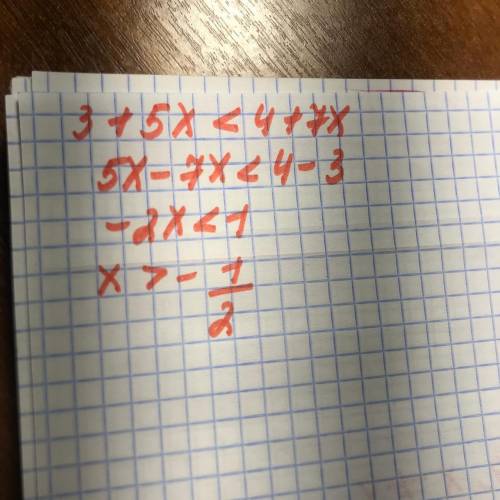 3 + 5x < 4 + 7x
5x - 7x < 4 - 3
-2x < 1
x > - 1/2